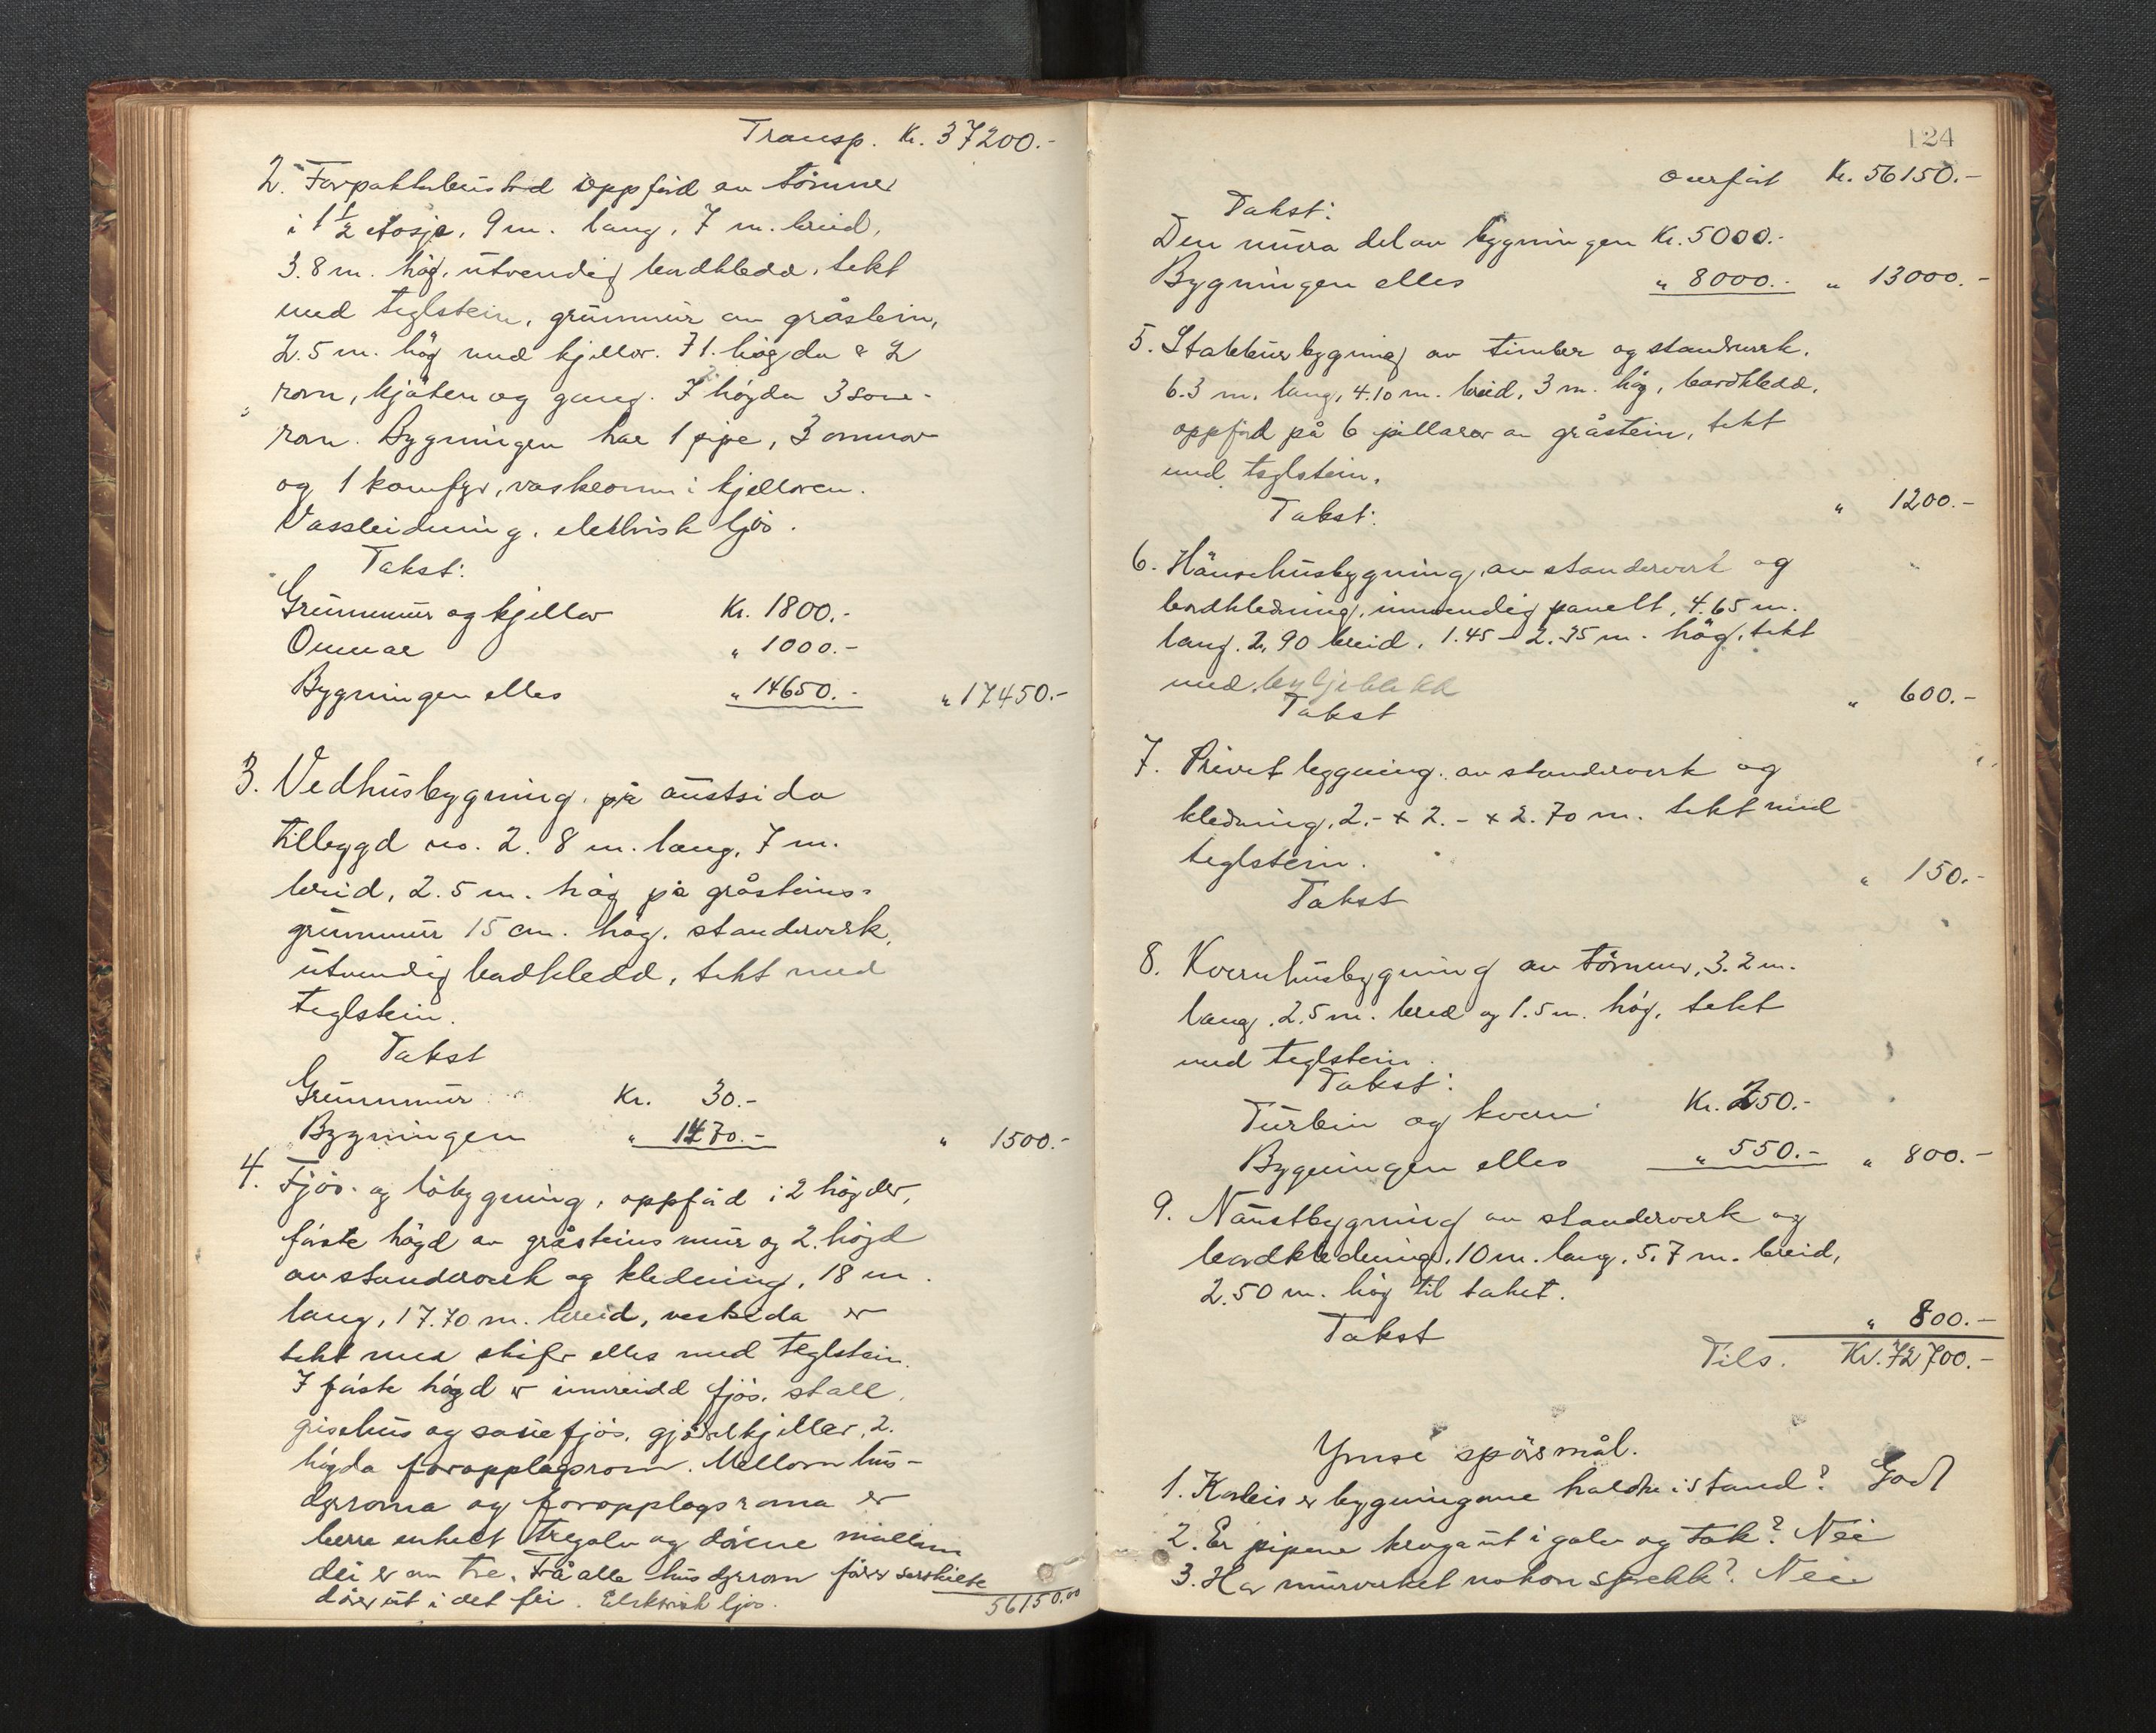 Transp. Kr. 37200.-
2. Forpaktarbustad oppförd av tömmer
i 1 1/2 etasje, 9 m. lang, 7 m. breid,
3.8 m. hög, utvendig bordkledd, tekt
med teglstein, grunnmur av gråstein,
2.5 m. hög med kjellar. I 1. högda er 2
rom, kjöken og gang. I 2. högda 3 sove-
rom. Bygningen har 1 pipe, 3 omnar
og 1 komfyr, vaskeomn i kjellaren.
Vassleidning, elektrisk ljos.
Takst:
Grunnmur og kjellar Kr. 1800.-
Omnar " 1000.-
Bygningen elles " 14650.- " 17450.-
3. Vedhusbygning, på austsida
tilbygd no. 2. 8 m. lang, 7 m.
breid, 2.5 m. hög på gråsteins-
grunnmur 15 cm. hög, standerverk,
utvendig bordkledd, tekt med
teglstein.
Takst
Grunnmur Kr. 30.-
Bygningen " 1470.- " 1500.-
4. Fjös- og löbygning, oppförd i 2 högder,
förste högd av gråsteinsmur og 2. högd
av standerverk og kledning, 18 m.
lang, 17.70 m. breid, vestsida er
tekt med skifer elles med teglstein.
I förste högd er innreidd fjös, stall,
grisehus og sauefjös, gjödselkjellar, 2.
högda foropplagsrom. Mellom hus-
dyrroma og foropplagsroma er
berre enkelt tregolv og dörene millom
dei er av tre. Frå alle husdyrrom förer serskilte
dörer ut i det fri. Elektrisk ljos.
56150.00
124
Overfört Kr. 56150.-
Takst:
Den mura del av bygningen Kr. 5000.-
Bygningen elles " 8000.- " 13000.-
5. Stabbursbygning av timber og standverk,
6.3 m. lang, 4.10 m. breid, 3 m. hög, bordkledd,
oppförd på 6 pillarer av gråstein, tekt
med teglstein.
Takst: " 1200.-
6. Hönsehusbygning, av standerverk og
bordkledning, innvendig panelt, 4.65 m.
lang, 2.90 breid, 1.45 - 2.35 m. hög, tekt
med bylgjeblekk
Takst " 600.-
7. Privetbygning av standerverk og
kledning, 2.- x 2.- x 2.70 m. tekt med
teglstein.
Takst " 150.-
8. Kvernhusbygning av tömmer, 3.2 m.
lang, 2.5 m. breid og 1.5 m. hög, tekt
med teglstein.
Takst:
Turbin og kvern Kr. 250.-
Bygningen elles " 550.- " 800.-
9. Naustbygning av standerverk og
bordkledning, 10 m. lang, 5.7 m. breid,
2.50 m. hög til taket.
Takst " 800.-
Tils. Kr. 72700.-
Ymse spörsmål.
1. Korleis er bygningane haldne i stand? God
2. Er pipene kraga ut i golv og tak? Nei
3. Har murverket nokon sprekk? Nei